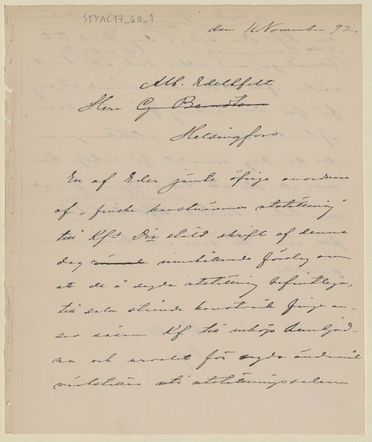 STYAC17_60_1
den 1 November 92.
Alb. Edelfelt
Herr G. Berndtson
Helsingfors
En af Eder jemte öfrige anordnare
af "finske konstnärers utställning"
till Kfs Dir ställd skrift af denna
dag innehållande förslag om
att de å sagda utställning befintliga,
till salu stående konstverk finge an-
ses såsom Kf till inköp hembjud-
na och arvodet för sagda ändamål
utställningssalen